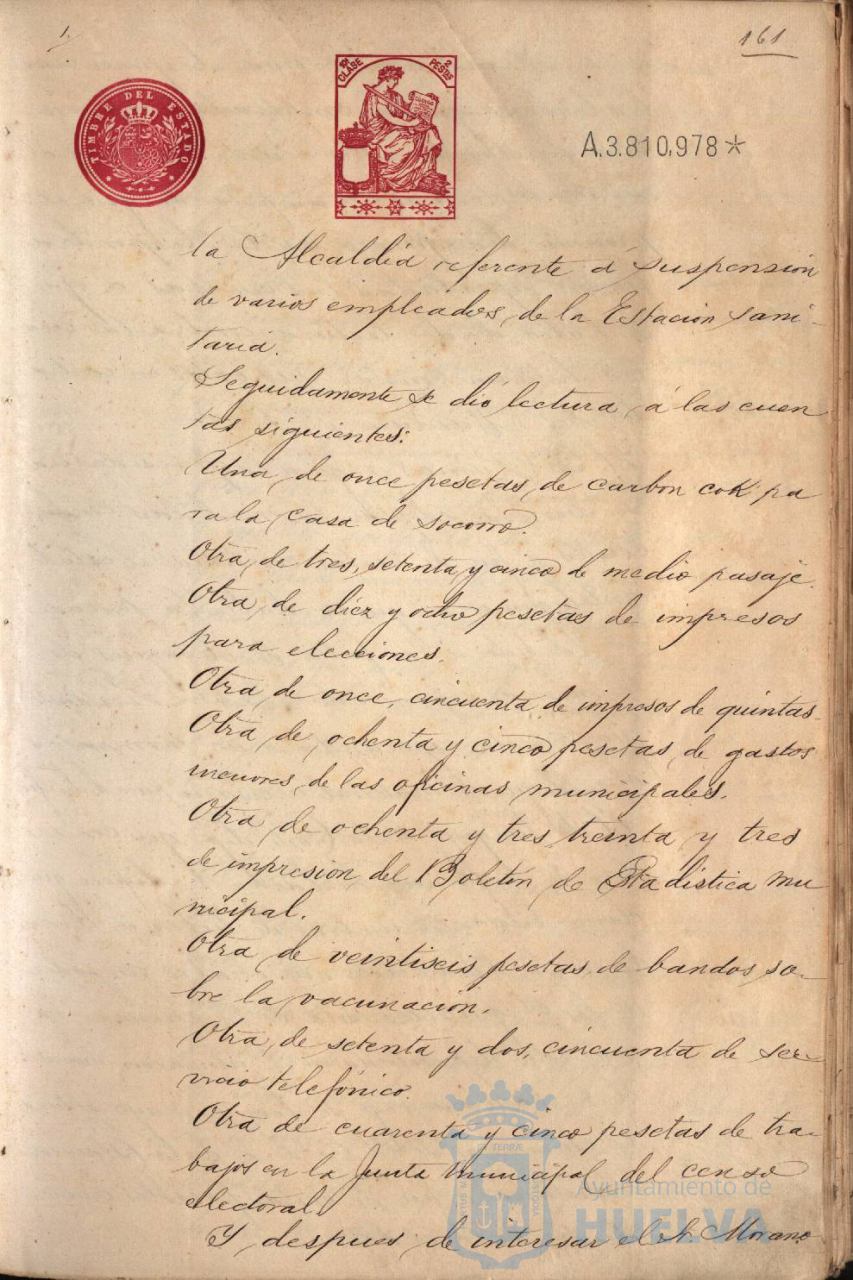 161
TIMBRE DEL ESTADO
CLASE
2
PESETAS
A.3.810,978*
la Alcaldia referente á suspension
de varios empleados de la Estacion sani-
taria.
Seguidamente se dió lectura á las cuen
tas siguientes:
Una de once pesetas de carbon cok pa
ra la casa de socorro.
Otra de tres, setenta y cinco de medio pasaje.
Otra de diez y ocho pesetas de impresos
para elecciones.
Otra de once, cincuenta de impresos de quintas.
Otra de ochenta y cinco pesetas de gastos
menores de las oficinas municipales.
Otra de ochenta y tres treinta y tres
de impresion del Boletin de Estadistica mu
nicipal.
Otra de veintiseis pesetas de bandos so-
bre la vacunacion.
Otra de setenta y dos, cincuenta de ser-
vicio telefónico.
Otra de cuarenta y cinco pesetas de tra-
bajos en la Junta municipal del censo
electoral.
Y despues de interesar el Sr. Morano
Ayuntamiento de
HUELVA